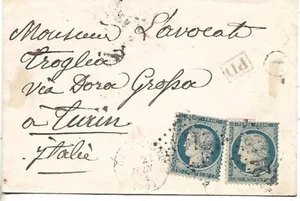 Monsieur L'avocat
Troglia
via Dora Großa
a Turin
Italie
PD